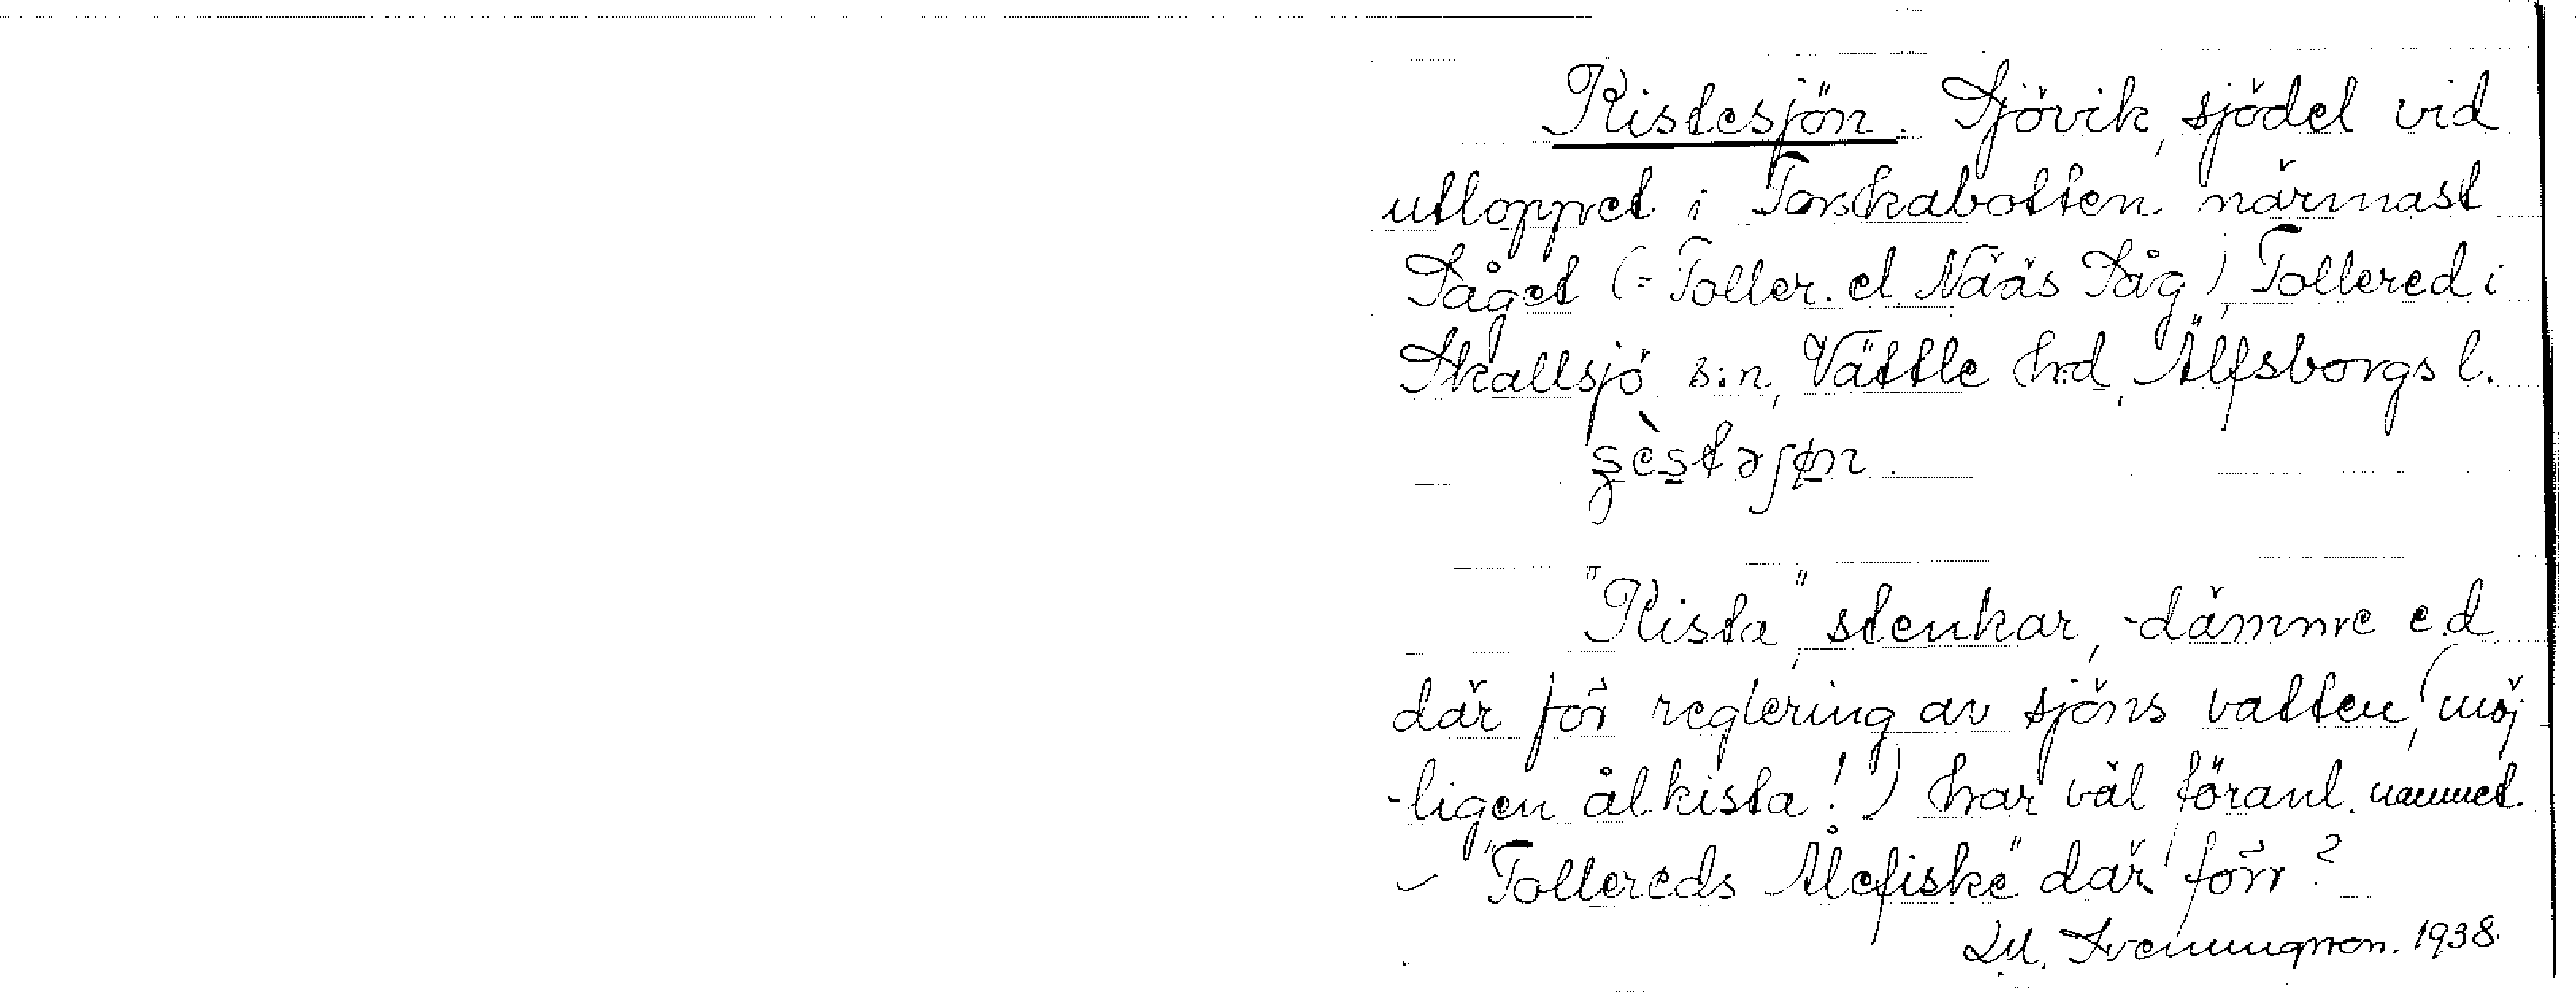 Kistesjön. Sjövik, sjödel vid
utloppet i Torskabotten närmast
Såget (= Toller. el. Nääs Såg), Tollered i
Skallsjö s:n, Vättle h:d, Älfsborgs l.
"Kista", stenkar, -dämme e.d.
där för reglering av sjöns vatten, (möj
-ligen ålkista!) har väl föranl. namnet.
– "Tollereds Ålefiske" där förr?
1938.